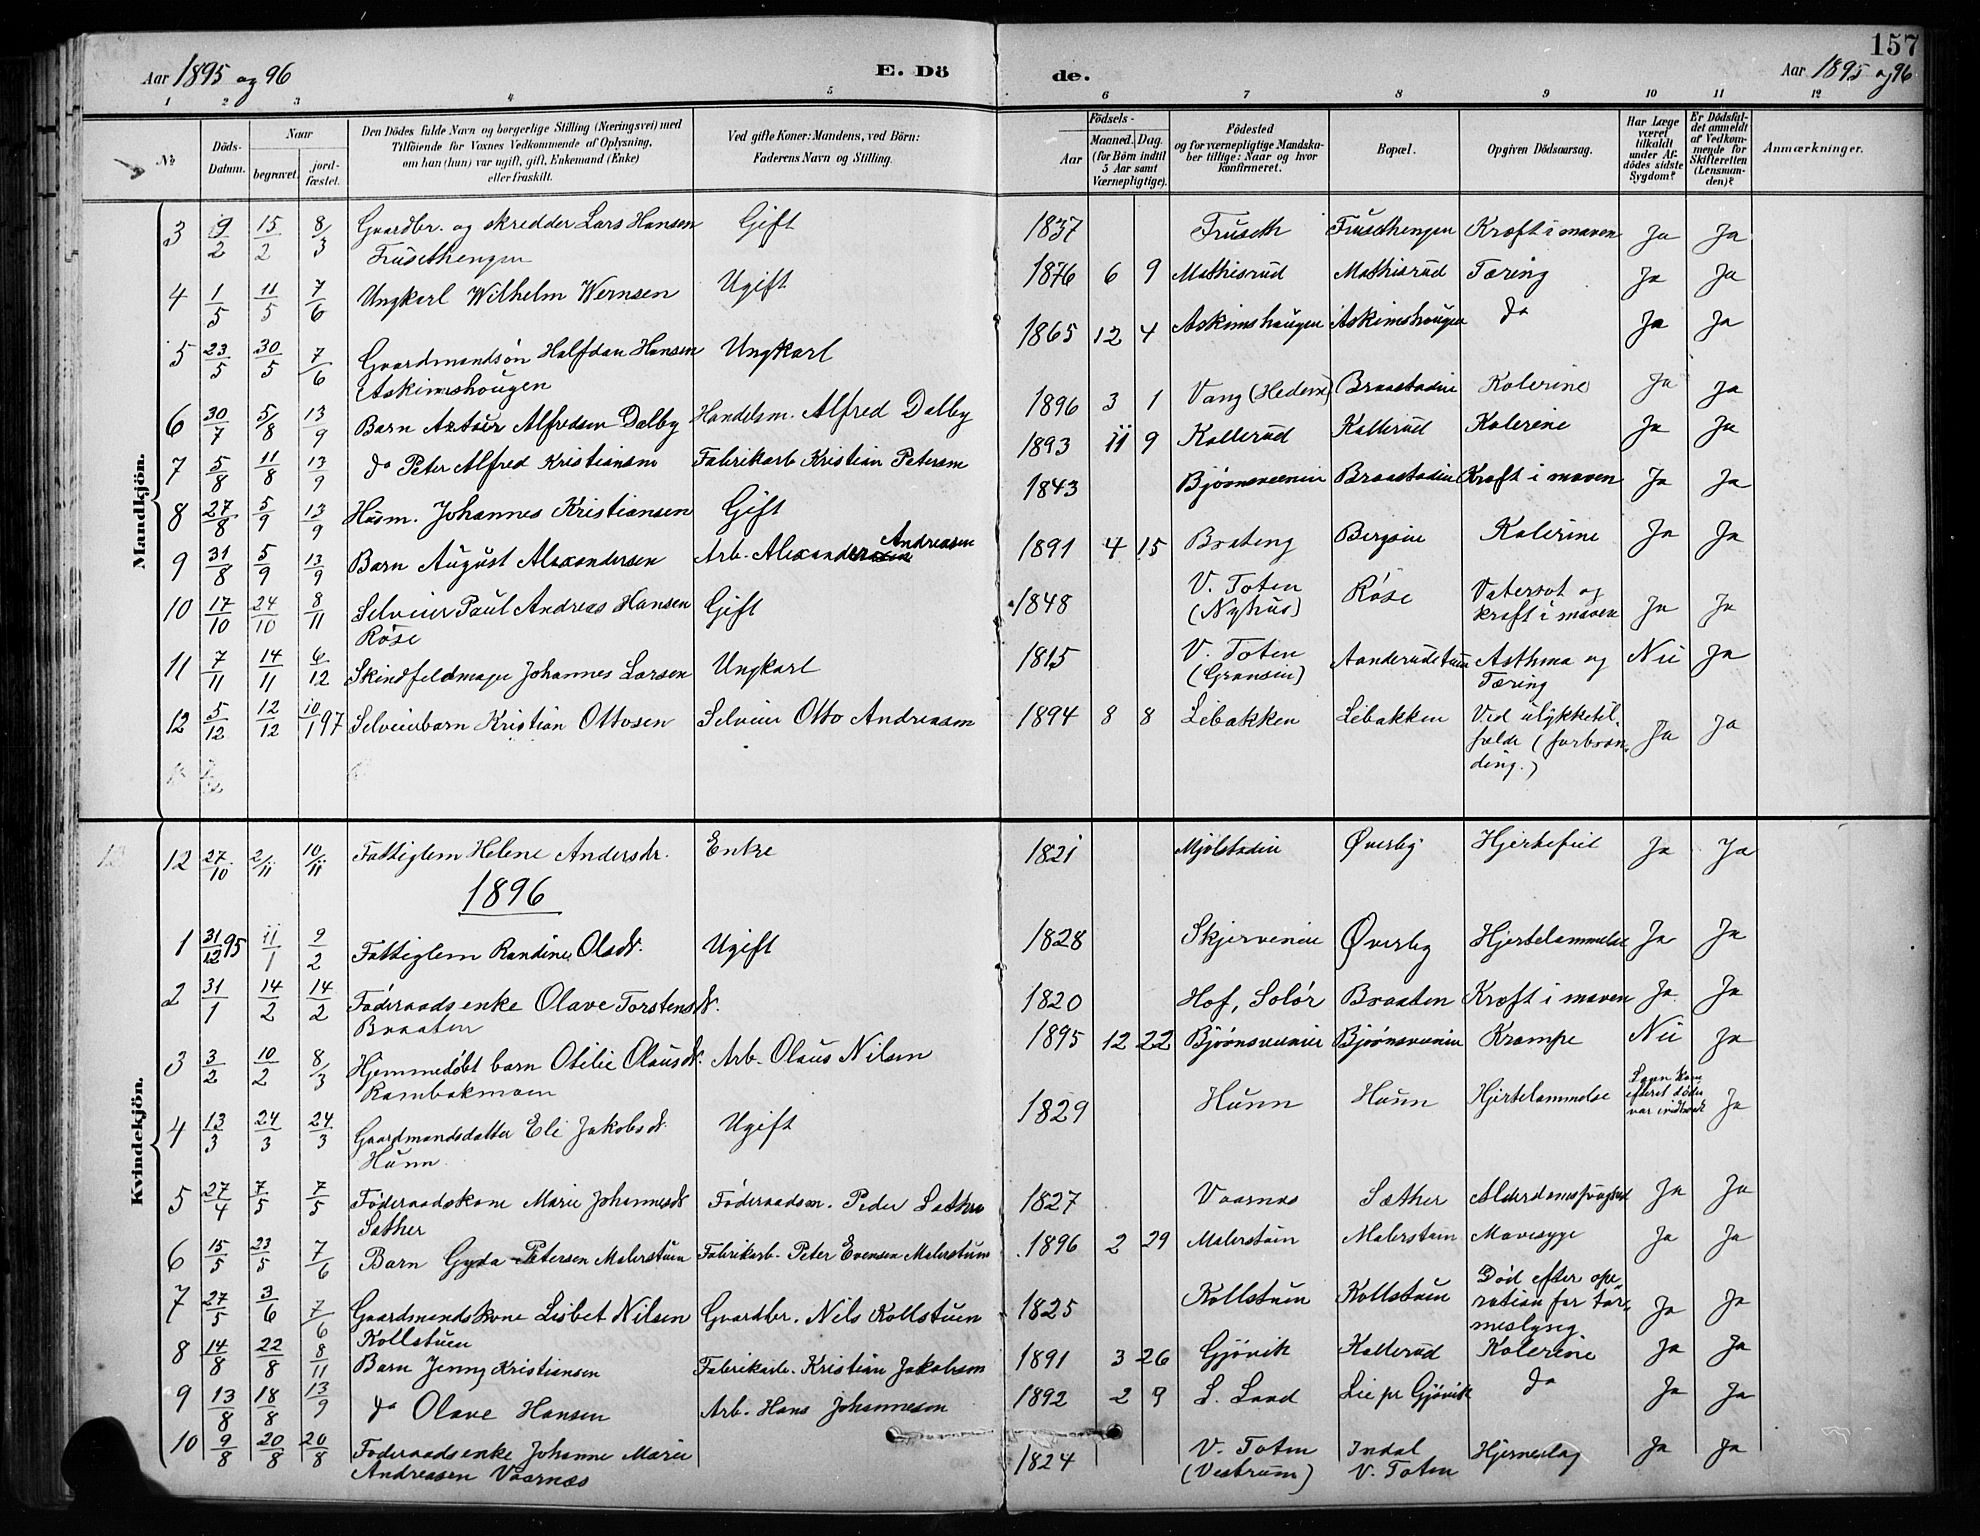 157
Aar 1895 og 96 E. Dö de. Aar 1895 og 96
1 2 3 4 5 6 7 8 9 10 11 12
No Döds-Datum. Naar begravet. jordfæstet. Den Dödes fulde Navn og borgerlige Stilling (Næringsvei) med Tilföiende for Voxnes Vedkommende af Oplysning, om han (hun) var ugift, gift, Enkemand (Enke) eller fraskilt. Ved gifte Koner: Mandens, ved Börn: Faderens Navn og Stilling. Födsels- Aar Maaned. Dag. (for Börn indtil 5 Aar samt Værnepligtige). Födested og for værnepligtige Mandskaber tillige: Naar og hvor konfirmeret. Bopæl. Opgiven Dödsaarsag. Har Læge været tilkaldt under Afdödes sidste Sygdom? Er Dödsfaldet anmeldt af Vedkommende for Skifteretten (Lensmanden)? Anmærkninger.
Mandkjön.
3 9/2 15/2 8/3 Gaardbr. og skredder Lars Hansen Gift 1837 Fruseth Frusethengen Kræft i maven Ja Ja
Frusethengen
4 1/5 11/5 7/6 Ungkarl Wilhelm Wernsen Ugift 1876 6 9 Mathisrud Mathisrud Tæring Ja Ja
5 23/5 30/5 7/6 Gaardmandsøn Halfdan Hansen Ungkarl 1865 12 4 Askimshaugen Askimshaugen do Ja Ja
Askimshougen
6 30/7 5/8 13/9 Barn Artur Alfredsen Dalby Handelsm. Alfred Dalby 1896 3 1 Vang (Hedem) Braastadeie Kolerine Ja Ja
7 5/8 11/8 13/9 do Peter Alfred Kristiansen Fabrikarb. Kristian Petersen 1893 11 9 Kallerud Kallerud Kolerine Ja Ja
8 27/8 5/9 13/9 Husm. Johannes Kristiansen Gift 1843 Bjørnsveeneie Braastadeie Kræft i maven Ja Ja
9 31/8 5/9 13/9 Barn August Alexandersen Arb. Alexander Andreasen 1891 4 15 Brateng Bergseie Kolerine Ja Ja
10 17/10 24/10 8/11 Selveier Paul Andreas Hansen Gift 1848 V. Toten (Nyhus) Røse Vatersot og kræft i maven Ja Ja
Røse
11 7/11 14/11 6/12 Skindfeldmager Johannes Larsen Ungkarl 1815 V. Toten (Granseie) Aanderudstuen Asthma og Tæring Nei Ja
12 5/12 12/12 10/1 97 Selveierbarn Kristian Ottosen Selveier Otto Andreasen 1894 8 8 Libakken Libakken Ved ulykketilfælde (forbrænding.) Ja Ja
Kvindekjön.
12 27/10 2/11 10/11 Fattiglem Helene Andersdr. Enke 1821 Mjølstadeie Øverby Hjertefeil Ja Ja
1896
1 31/12 95 11/1 9/2 Fattiglem Randine Olsdr. Ugift 1828 Skjerveneie Øverby Hjertelammelse Ja Ja
2 31/1 14/2 14/2 Føderaadsenke Olave Torstensdr. 1820 Hof, Solør Braaten Kræft i maven Ja Ja
Braaten
3 3/2 10/2 8/3 Hjemmedøbt barn Otilie Olausdr. Arb. Olaus Nilsen 1895 12 22 Bjørnsveeneie Bjørnsveeneie Krampe Nei Ja
Rambekmoen
4 13/3 24/3 24/3 Gaardmandsdatter Eli Jakobsdr. Ugift 1829 Hunn Hunn Hjertelammelse Ja
Hunn
5 27/4 7/5 7/5 Føderaadskone Marie Johannesdr. Føderaadsm. Peder Sæther 1827 Vaarnæs Sæther Alderdomssvaghed Ja Ja
Sæther
6 15/5 23/5 7/6 Barn Gyda Petersen Malerstuen Fabrikarb. Peter Evensen Malerstuen 1896 2 29 Malerstuen Malerstuen Mavesyge Ja Ja
7 27/5 3/6 7/6 Gaardmandskone Lisbet Nilsen Gaardbr. Nils Kollstuen 1825 Kollstuen Kollstuen Død efter operation for tarmeslyng Ja Ja
Kollstuen
8 14/8 22/8 8/11 Barn Jenny Kristiansen Fabrikarb. Kristian Jakobsen 1891 3 26 Gjøvik Kallerud Kolerine Ja Ja
9 13/8 18/8 13/9 do Olave Hansen Arb. Hans Johannesen 1892 2 9 S. Land Lie pr Gjøvik do Ja Ja
10 9/8 20/8 20/8 Føderaadsenke Johanne Marie 1824 V. Toten (Vestrum) Indal V. Toten Hjerneslag Ja Ja
Andreasen Vaarnæs